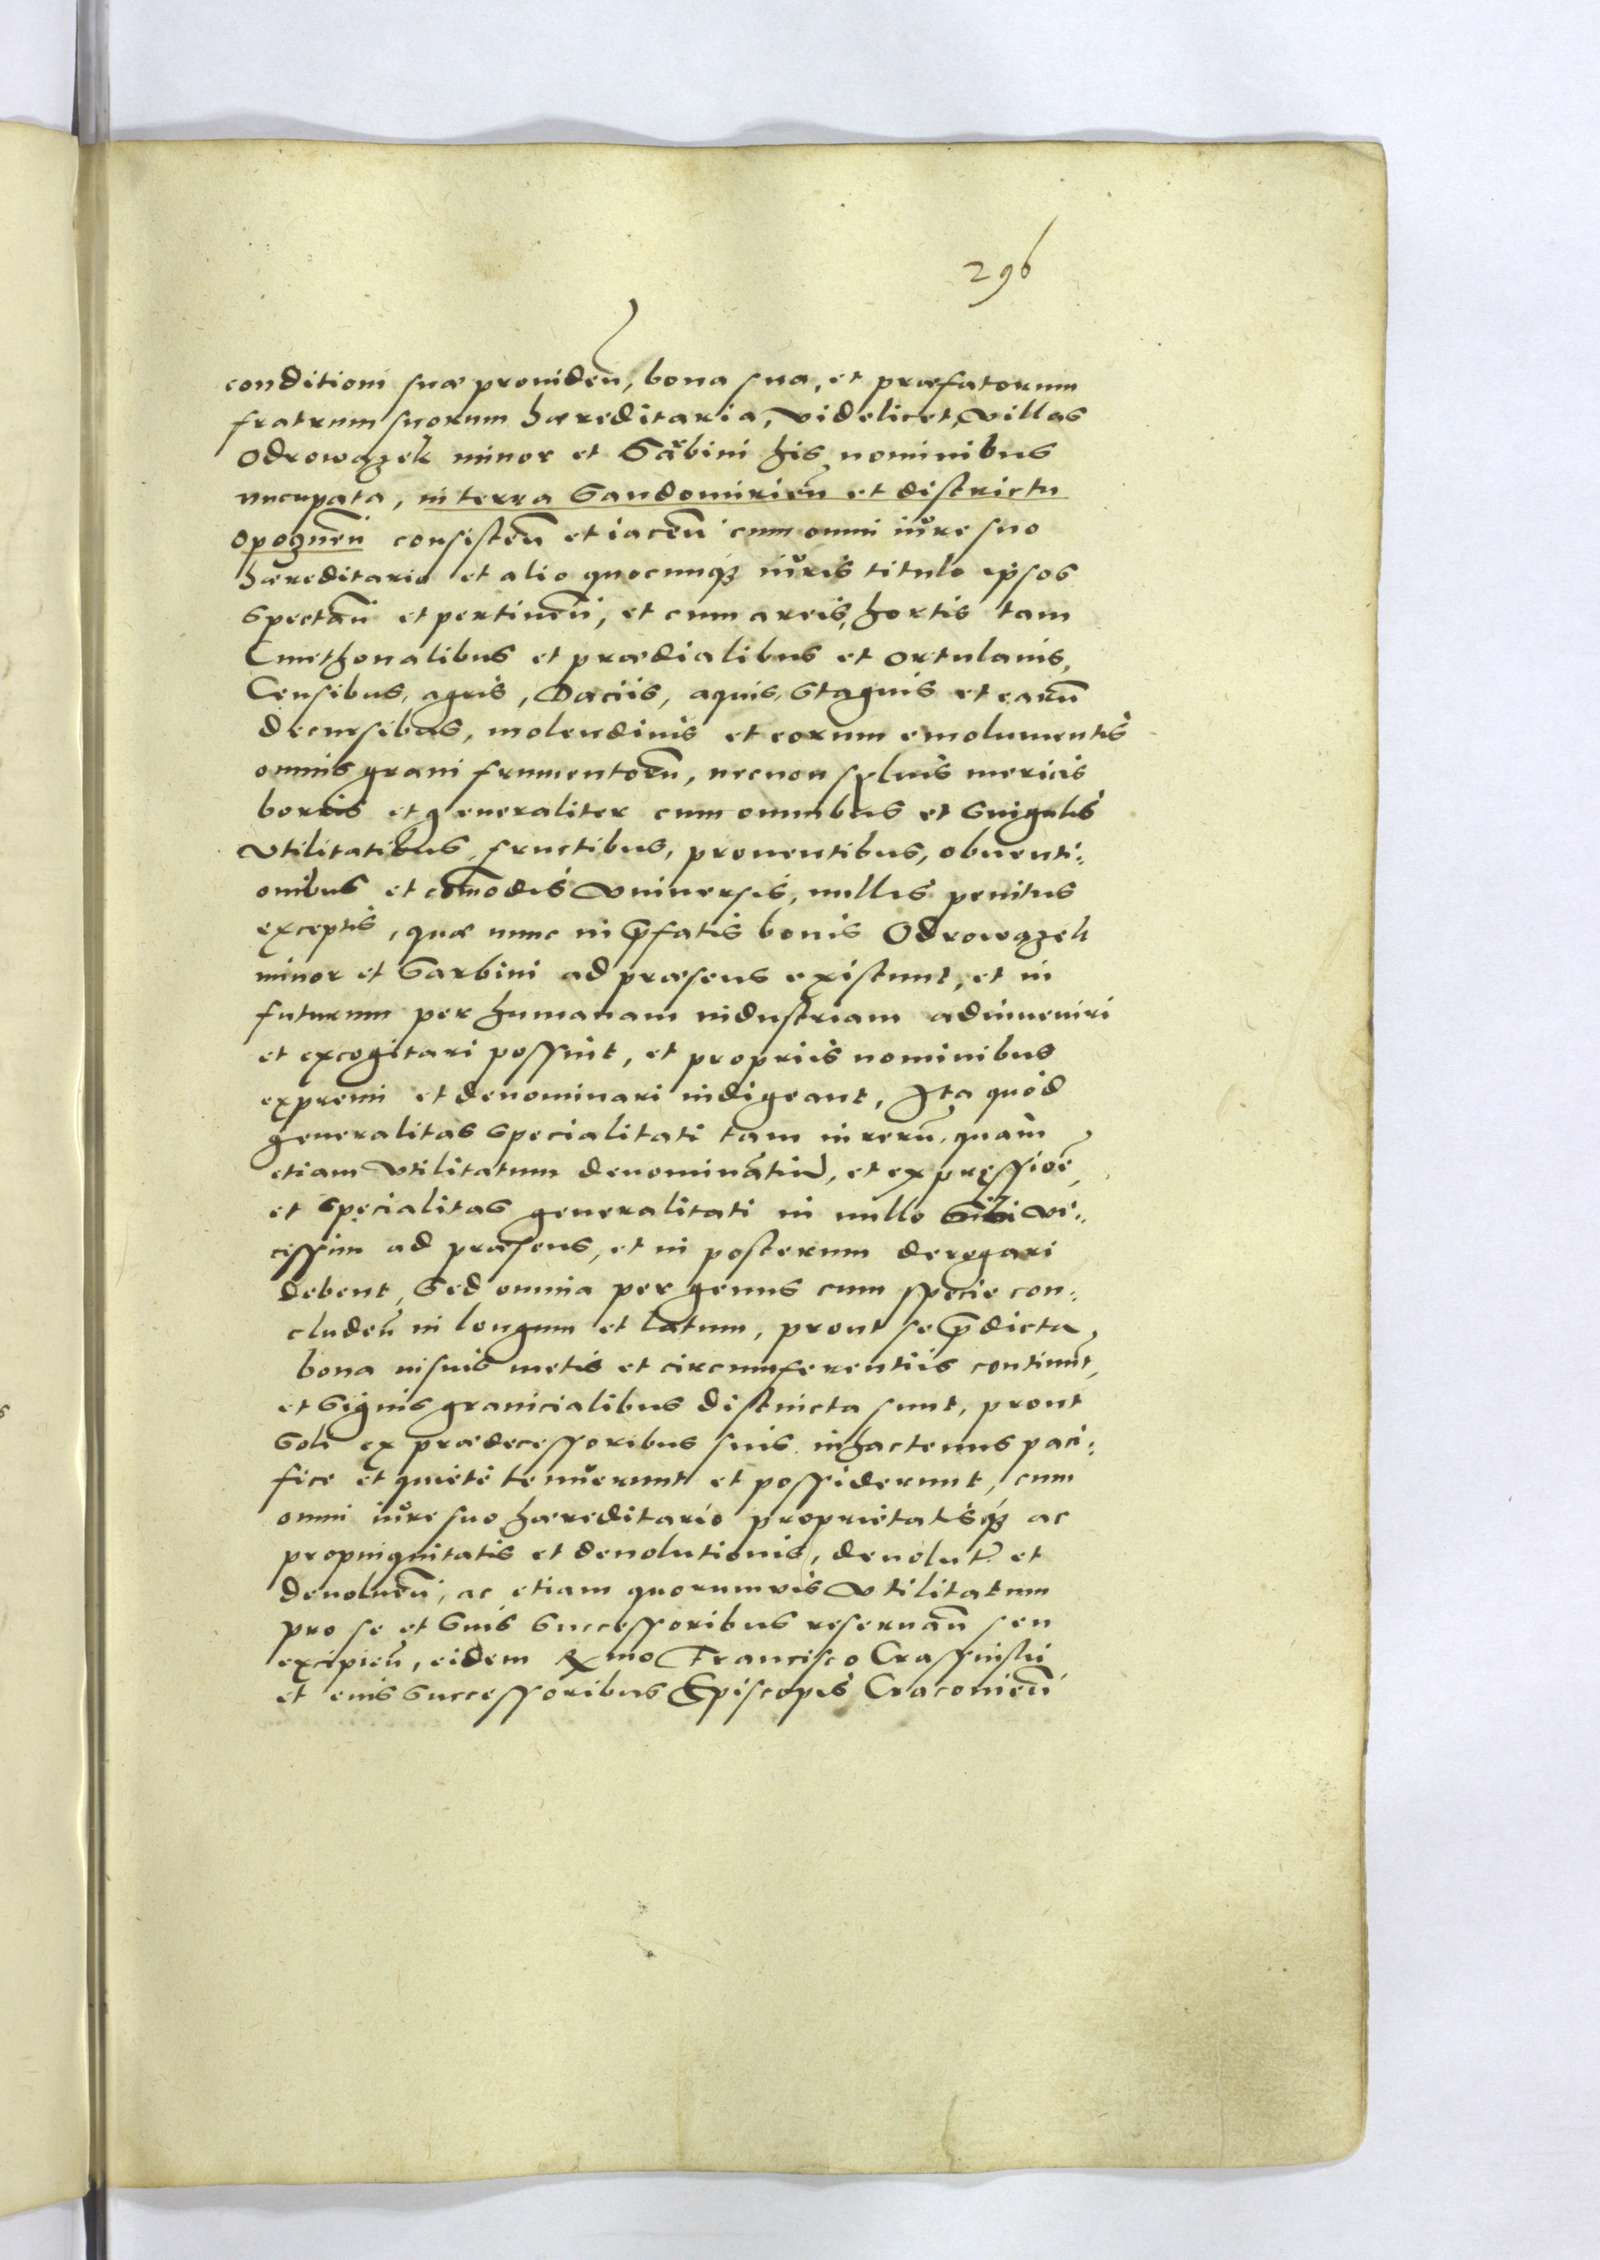 296
conditioni suæ prouideñ, bona sua, et præfatorum
fratrum suorum hæreditaria, videlicet, villas
Odrowązek minor et Gărbini his nominibus
nncupata, in terra Sandomirieñ et districtu
Opoznẽn consisteñ et iaceñ cum omni iure suo
hæreditario et alio quocunq3 iuris titulo ipsos
spectañ et pertineñ, et cum areis, hortis tam
Cmethonalibus et prædialibus et ortulanis,
Censibus, agris, Daciis, aquis, Stagnis et earũ
decursibus, molendinis et eorum emolumentis
omnis grani frumentorũ, necnon syluis mericis
borris et generaliter cum omnibus et singulis
vtilitatibus, fructibus, prouentibus, obuenti:
onibus et com̃odis vniuersis, nullis penitus
exceptis, quæ nunc in p̃fatis bonis Odrowązek
minor et Garbini ad præsens existunt, et in
futurum per humanam industriam adinueniri
et excogitari possint, et propriis nominibus
expremi et denominari indigeant, Ita quòd
generalitas specialitati tam in rerũ, quàm
etiam vtilitatum denominatiõ, et expressioẽ,
et specialitas generalitati in nullo sibi vi:
cissim ad præsens, et in posterum derogari
debent, Sed omnia per genus cum specie con:
cludeñ in longum et latum, prout se p̃dicta
bona in suis metis et circumferentiis continẽt,
et signis granicialibus distincta sunt, prout
soli ex prædecessoribus suis inhactenus paci:
fice et quiete tenuerunt et possiderunt, cum
omni iure suo hæreditario proprietatisq3 ac
propinquitatis et deuolutionis, deuolut et
deuolueñ, ac etiam quorumvis vtilitatum
pro se et suis successoribus reseruañ seu
excipieñ, eidem Rmo Francisco Crassinski
et eius successoribus Episcopis Cracouieñ